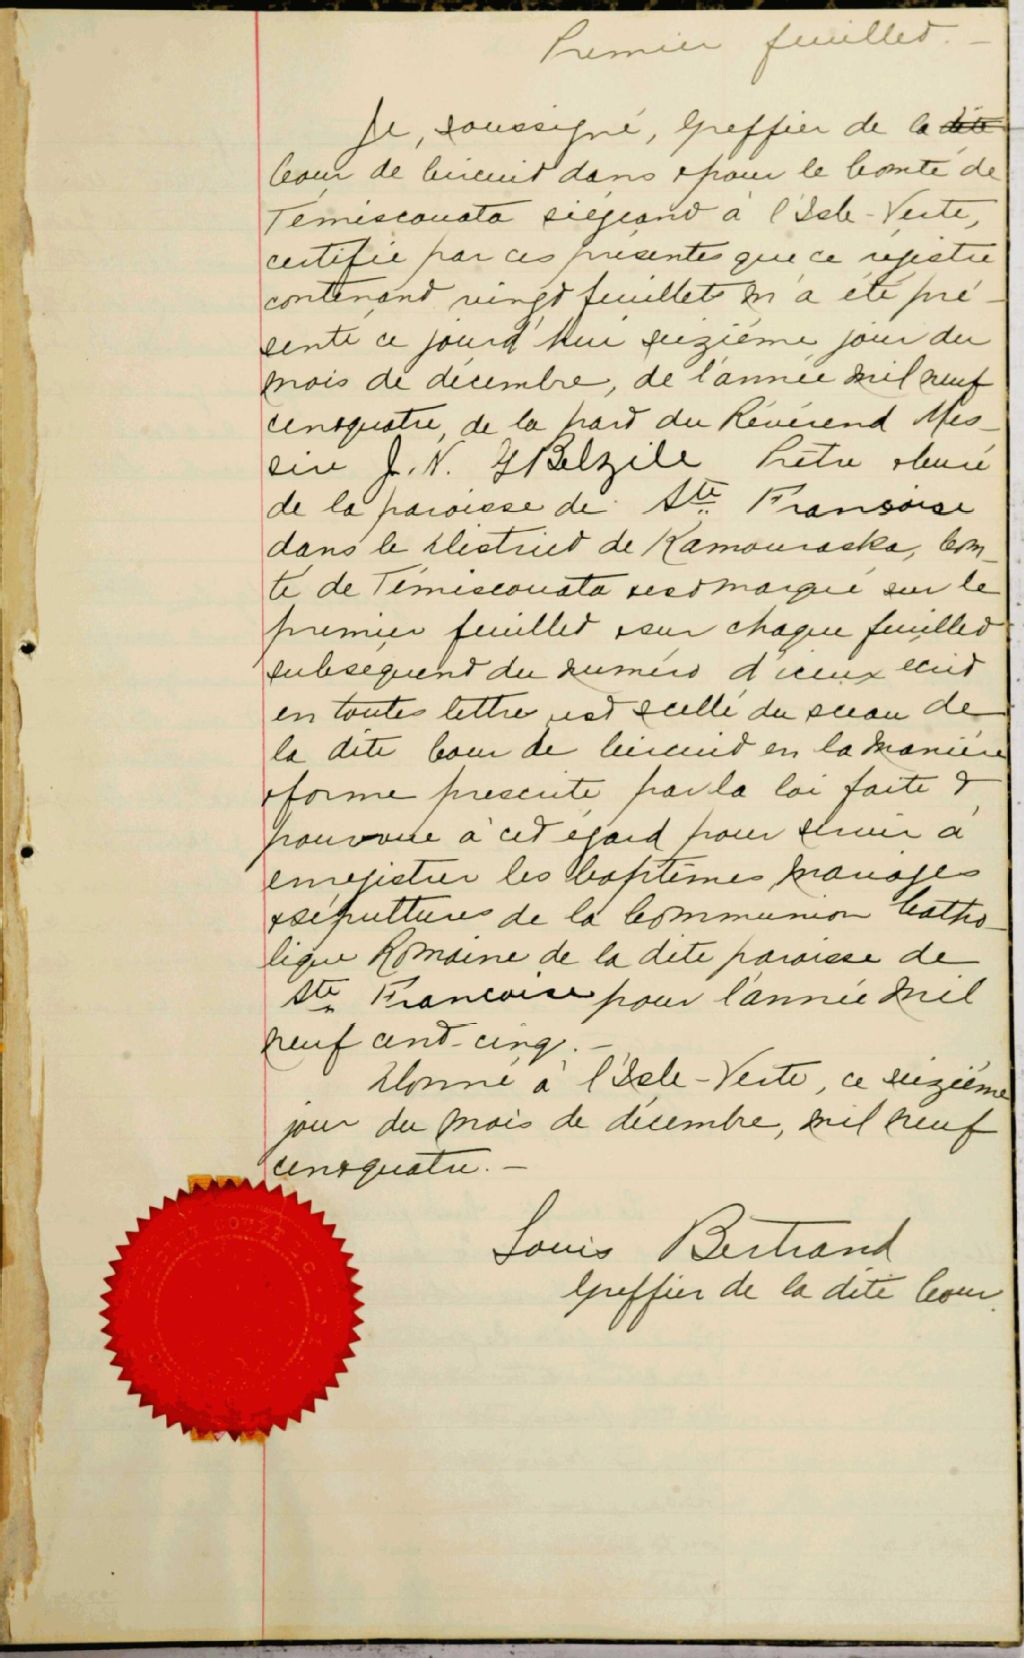 Premier feuillet. –
Je, soussigné, Greffier de la dite
Cour de Circuit dans & pour le Comté de
Témiscouata siégeant à l'Isle-Verte,
certifie par ces présentes que ce régistre
contenant vingt feuillets m'a été pré-
senté ce jourd'hui seizième jour du
mois de décembre, de l'année mil neuf
cent quatre, de la part du Révérend Mes-
sire J. N. Y Belzile Prêtre & Curé
de la paroisse de Ste Francoise
dans le District de Kamouraska, Com-
té de Témiscouata & est marqué sur le
premier feuillet & sur chaque feuillet
subséquent du numéro d'iceux écrit
en toutes lettre, est scellé du sceau de
la dite Cour de Circuit en la manière
& forme prescrite par la loi faite &
pourvue à cet égard pour servir à
enregistrer les Baptêmes, mariages
& sépultures de la Communion Catho-
lique Romaine de la dite paroisse de
Ste Francoise pour l'année mil
neuf cent-cinq. –
Donné à l'Isle-Verte, ce seizième
jour du mois de décembre, mil neuf
cent quatre. –
Louis Bertrand
Greffier de la dite Cour.